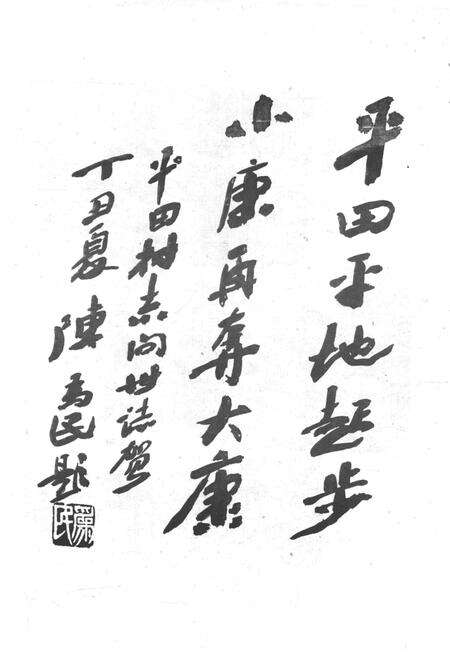 平田平地起步
小康再奔大康
平田村志问世誌贺
丁丑夏 陳為民題